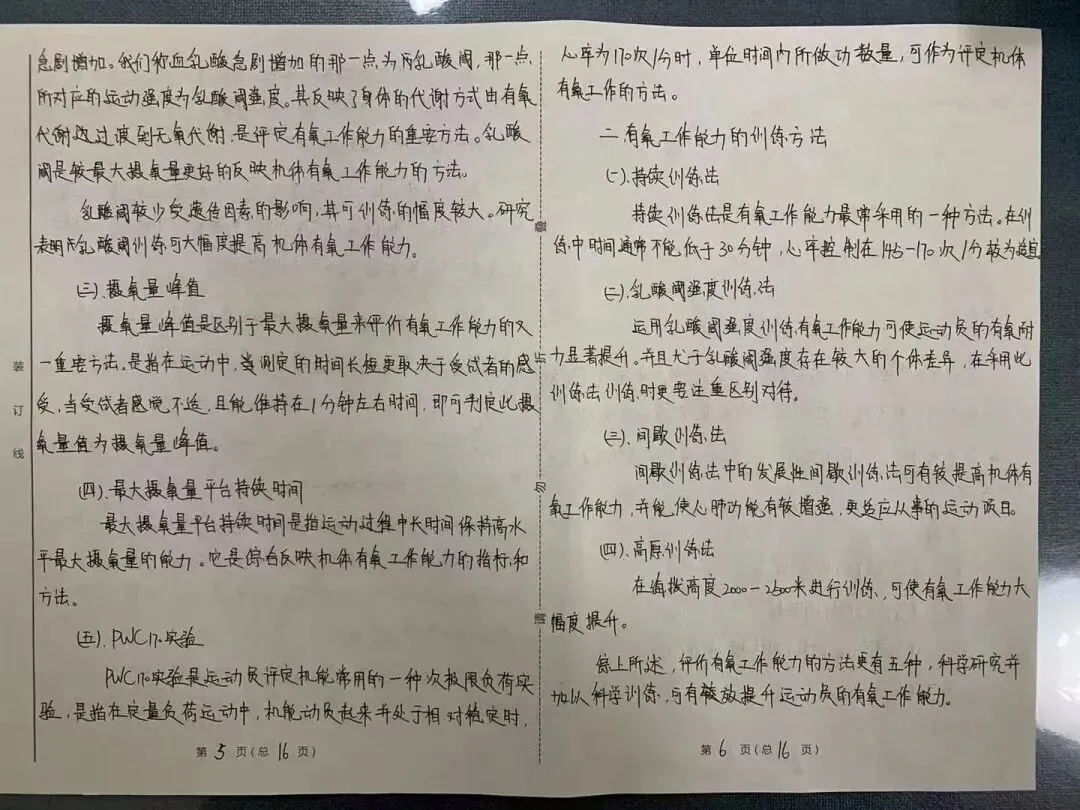 急剧增加。我们称血乳酸急剧增加的那一点为乳酸阈，那一点
所对应的运动强度为乳酸阈强度。其反映了身体的代谢方式由有氧
代谢过渡到无氧代谢，是评定有氧工作能力的重要方法。乳酸
阈是较最大摄氧量更好的反映机体有氧工作能力的方法。
乳酸阈较少受遗传因素的影响，其可训练的幅度较大。研究
表明乳酸阈训练可大幅度提高机体有氧工作能力。
(三).摄氧量峰值
摄氧量峰值是区别于最大摄氧量来评价有氧工作能力的又
一重要方法。是指在运动中，当测定的时间长短更取决于受试者的感
受，当受试者感觉不适，且能维持在1分钟左右时间，即可判定此摄
氧量值为摄氧量峰值。
(四).最大摄氧量平台持续时间
最大摄氧量平台持续时间是指运动过程中长时间保持高水
平最大摄氧量的能力。它是综合反映机体有氧工作能力的指标和
方法。
(五).PWC170实验
PWC170实验是运动员评定机能常用的一种次极限负荷实
验，是指在定量负荷运动中，机能动员起来并处于相对稳定时，
第5页(总16页)
心率为170次/分时，单位时间内所做功数量，可作为评定机体
有氧工作的方法。
二.有氧工作能力的训练方法
(一).持续训练法
持续训练法是有氧工作能力最常采用的一种方法。在训
练中时间通常不能低于30分钟，心率控制在145-170次/分较为适宜。
(二).乳酸阈强度训练法
运用乳酸阈强度训练有氧工作能力可使运动员的有氧耐
力显著提升。并且尤于乳酸阈强度存在较大的个体差异，在采用此
训练法训练时更要注重区别对待。
(三).间歇训练法
间歇训练法中的发展性间歇训练法可有效提高机体有
氧工作能力，并能使心肺功能有效增强，更适应从事的运动项目。
(四).高原训练法
在海拔高度2000-2500米进行训练，可使有氧工作能力大
幅度提升。
综上所述，评价有氧工作能力的方法更有五种，科学研究并
加以科学训练，可有效提升运动员的有氧工作能力。
第6页(总16页)
装
订
线